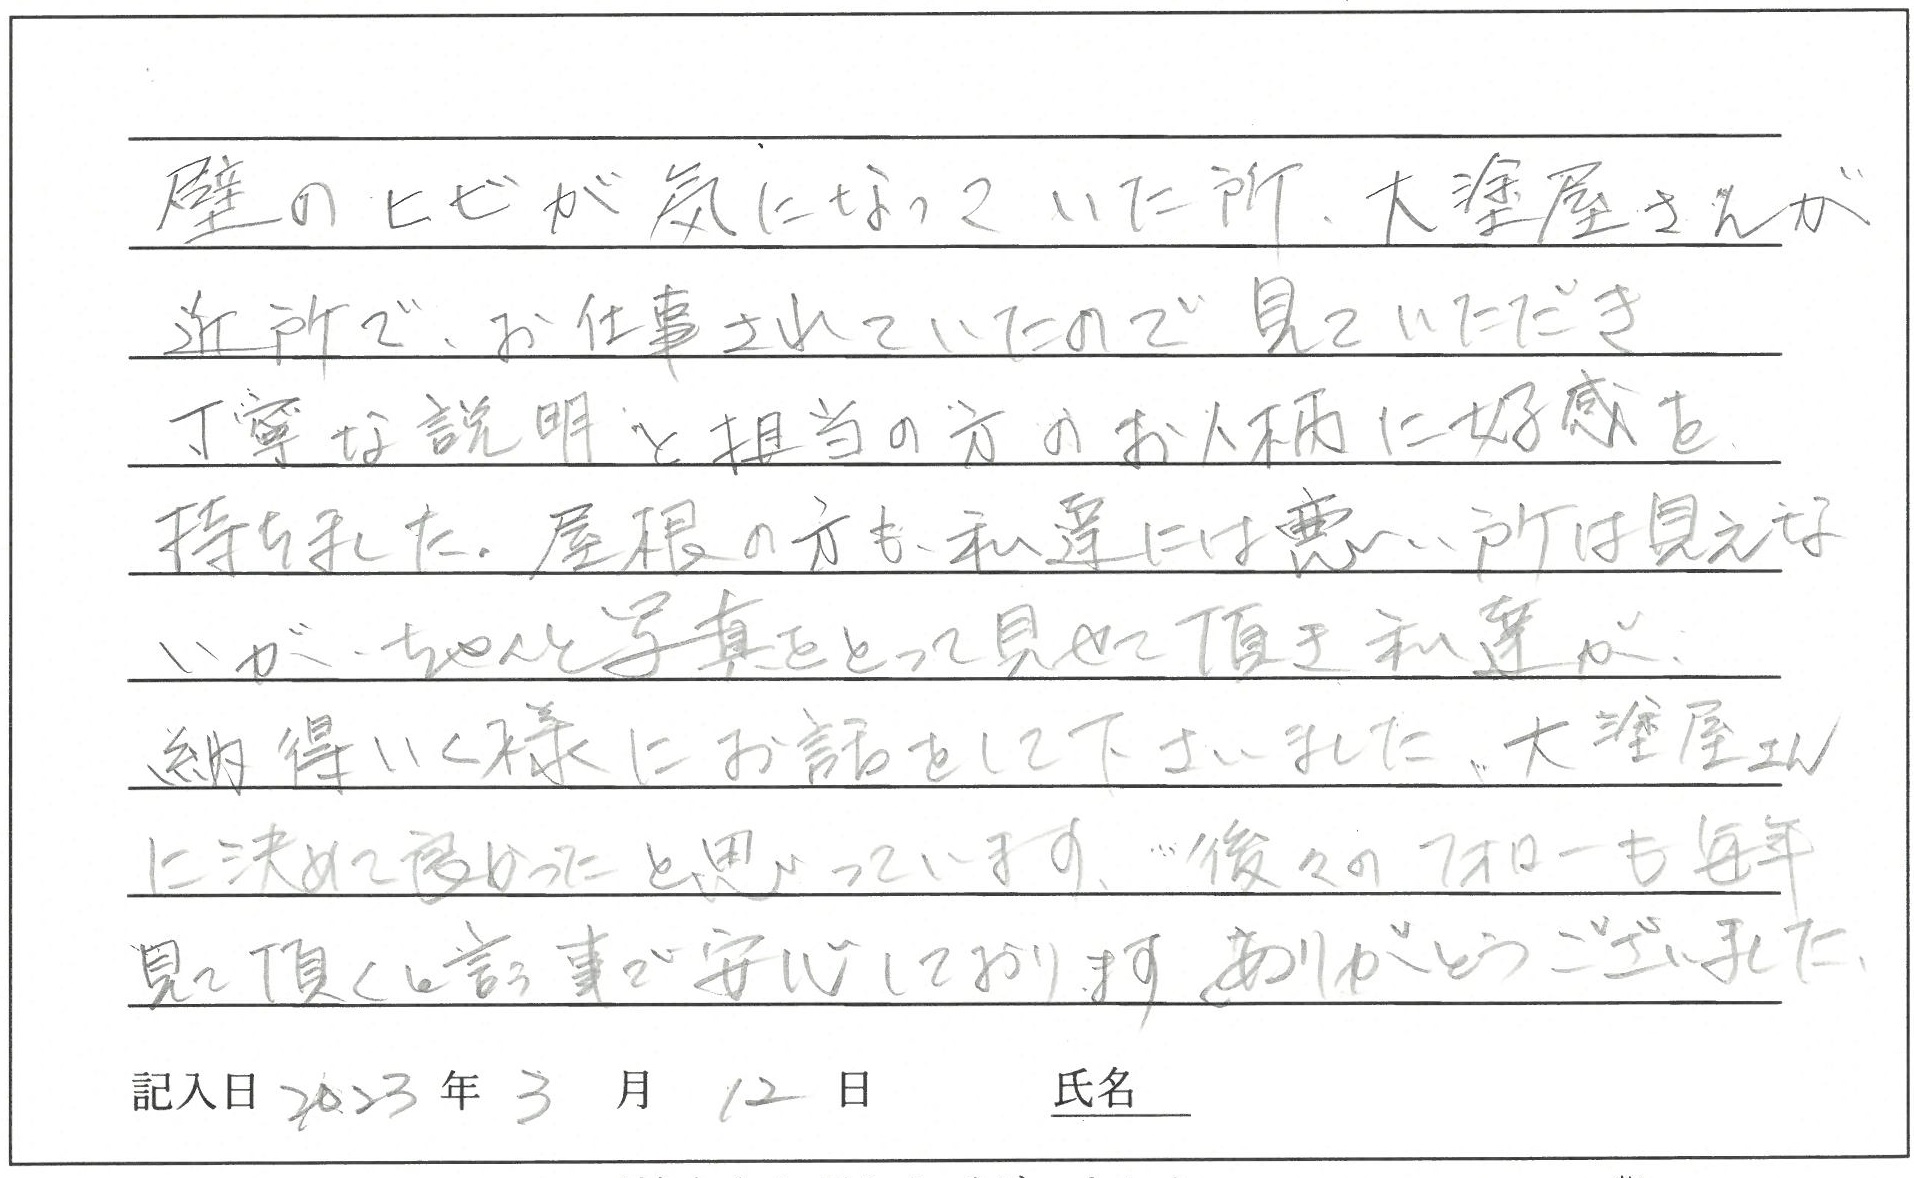 壁のヒビが気になっていた所、大塗屋さんが
近所で、お仕事されていたので見ていただき
丁寧な説明と担当の方のお人柄に好感を
持ちました。屋根の方も、私達には悪い所は見えな
いが、ちゃんと写真をとって見せて頂き私達が、
納得いく様にお話をして下さいました。大塗屋さん
に決めて良かったと思っています。後々のフォローも毎年
見て頂くと言う事で安心しております。ありがとうございました。
記入日 2023 年 3 月 12 日 氏名